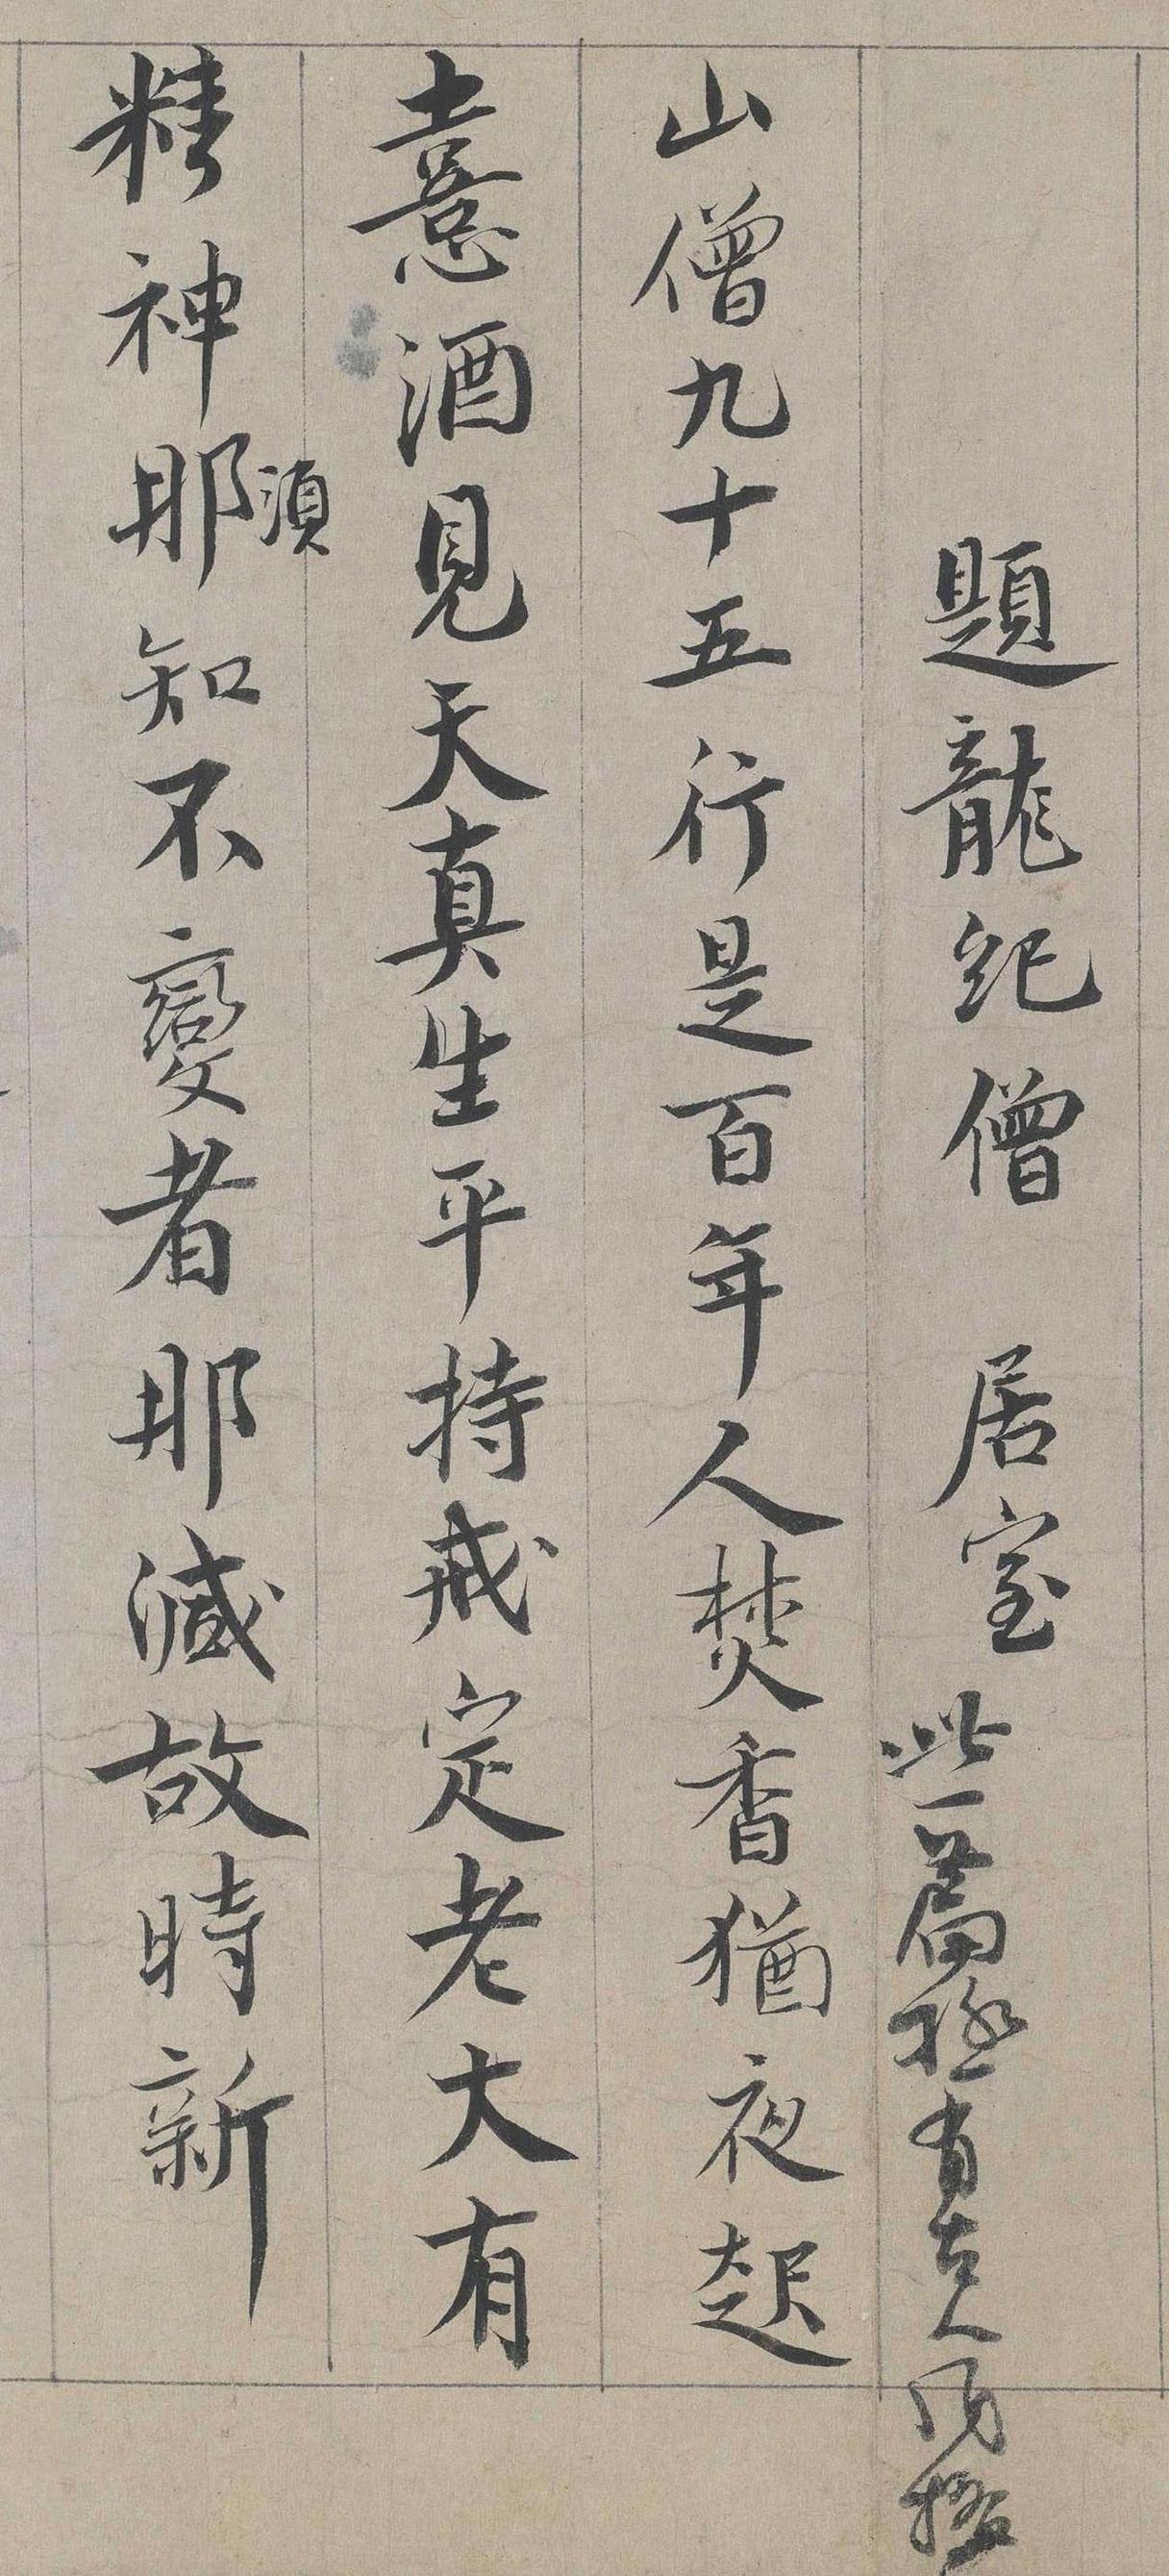 題龍紀僧 居室 此篇極有古人風格
山僧九十五行是百年人焚香猶夜起
憙酒見天真生平持戒定老大有
精神那須知不變者那減故時新